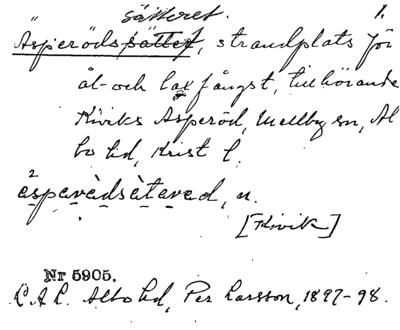 sätteret. 1.
Äsperöds sättet, strandplats för
ål- och laxfångst, tillhörande
Kiviks Äsperöd, Mellby sn, Al
bo hd, Krist l.
äsparàdsätared, n.
[Kivik]
Nr 5905.
L.A.L. Albo hd, Per Larsson, 1897-98.